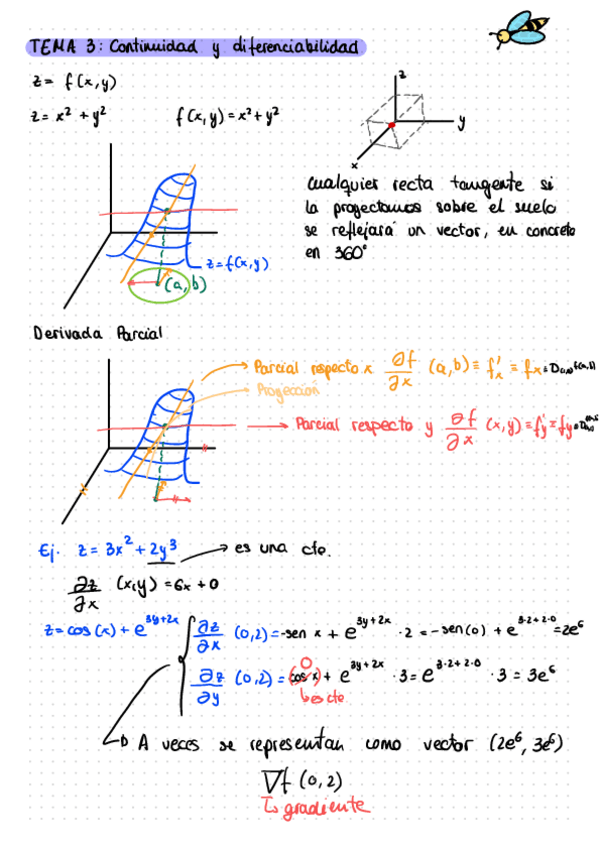 TEMA 3: Continuidad y diferenciabilidad
z = f(x,y)
z = x² + y²    f(x,y) = x² + y²
z
y
x
Cualquier recta tangente si
la proyectamos sobre el suelo
se reflejará un vector, en concreto
en 360°
z = f(x,y)
(a,b)
Derivada Parcial
Parcial respecto x ∂f/∂x (a,b) ≡ f'x ≡ fx ≡
Proyección
Parcial respecto y ∂f/∂x (x,y) ≡ f'y ≡ fy ≡
Ej. z = 3x² + 2y³ → es una cte.
∂z/∂x (x,y) = 6x + 0
z = cos(x) + e^3y+2x { ∂z/∂x (0,2) = -sen x + e^3y+2x · 2 = -sen(0) + e^3·2+2·0 = 2e⁶
∂z/∂y (0,2) = cos x + e^3y+2x · 3 = e^3·2+2·0 · 3 = 3e⁶
0
↳ es cte
A veces se representan como vector (2e⁶, 3e⁶)
∇f (0,2)
↳ gradiente